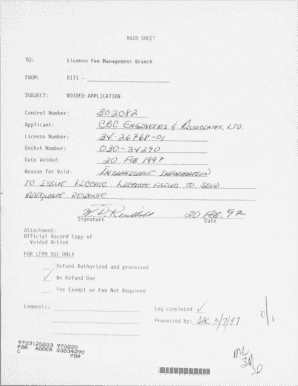 VOID SHEET
TO: License Fee Management Branch
FROM: RIII -
SUBJECT: VOIDED APPLICATION
Control Number: 302082
Applicant: CBC ENGINEERS & ASSOCIATES, LTD.
License Number: 34-26768-01
Docket Number: 030-34290
Date Voided: 20 FEB 1997
Reason for Void: INSUFFICIENT INFORMATION
TO ISSUE LICENSE. LICENSEE FAILED TO SEND
ADEQUATE RESPONSE
20 FEB, 97
Signature Date
Attachment:
Official Record Copy of
Voided Action
FOR LFMB USE ONLY
Refund Authorized and processed
✓ No Refund Due
Fee Exempt or Fee Not Required
Comments: Log completed ✓
Processed by: 3/7/97
9703120203 970220
PDR ADOCK 03034290
C PDR